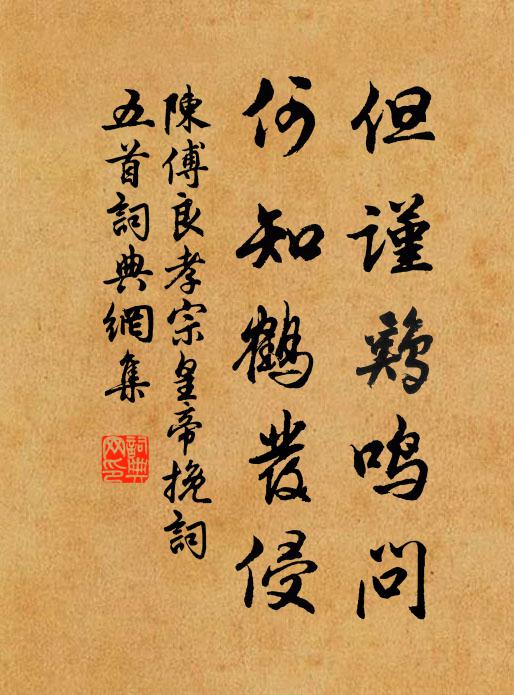 但謹鷄鳴問
何知鶴發侵
陳傅良孝宗皇帝挽詞
五首詞典網集
詞典
网印